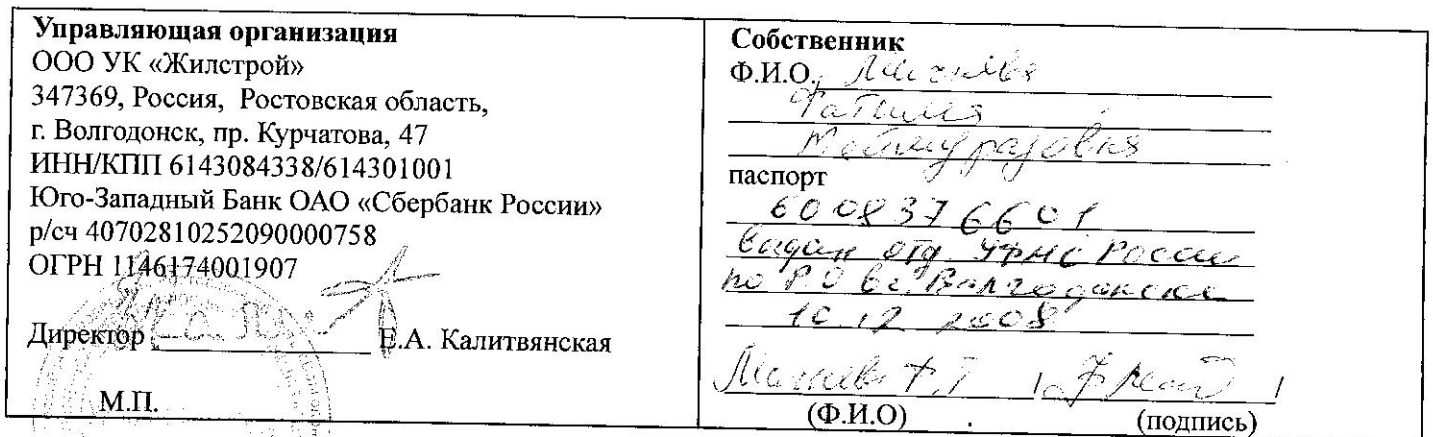 Управляющая организация
ООО УК «Жилстрой»
347369, Россия, Ростовская область,
г. Волгодонск, пр. Курчатова, 47
ИНН/КПП 6143084338/614301001
Юго-Западный Банк ОАО «Сбербанк России»
р/сч 40702810252090000758
ОГРН 1146174001907
Директор Е.А. Калитвянская
М.П.
Собственник
Ф.И.О.
Фатима
паспорт
6008376601
выдан отд. УФМС России
по РО в г. Волгодонске
10.12 2008
(Ф.И.О) (подпись)